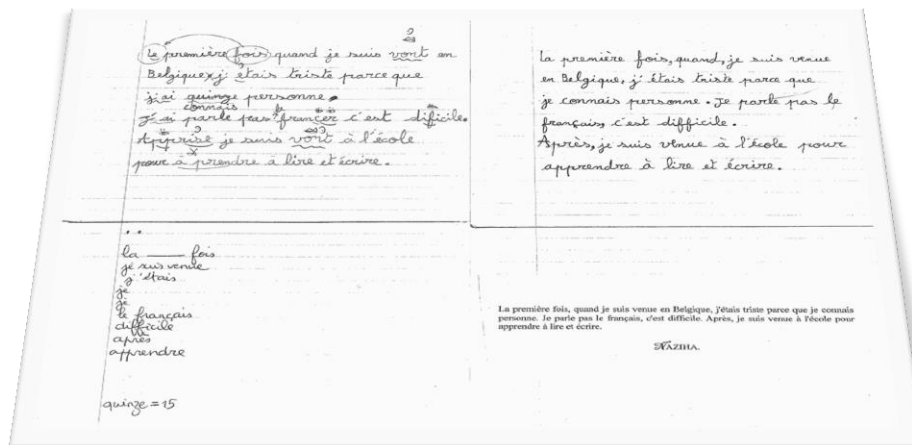 Le première fois quand je suis vont en
Belgique j'étais triste parce que
j'ai quinze personne.
connais le
J'ai parle pas francer c'est difficile.
je sui vont à l'école
pour à prendre à lire et écrire.
La première fois, quand, je suis venue
en Belgique, j'étais triste parce que
je connais personne. Je parle pas le
français, c'est difficile.
Après, je suis venue à l'école pour
apprendre à lire et écrire.
la fois
je suis venue
j'étais
je
je
le français
difficile
après
apprendre
quinze = 15
La première fois, quand je suis venue en Belgique, j'étais triste parce que je connais
personne. Je parle pas le français, c'est difficile. Après, je suis venue à l'école pour
apprendre à lire et écrire.
NAZIHA.